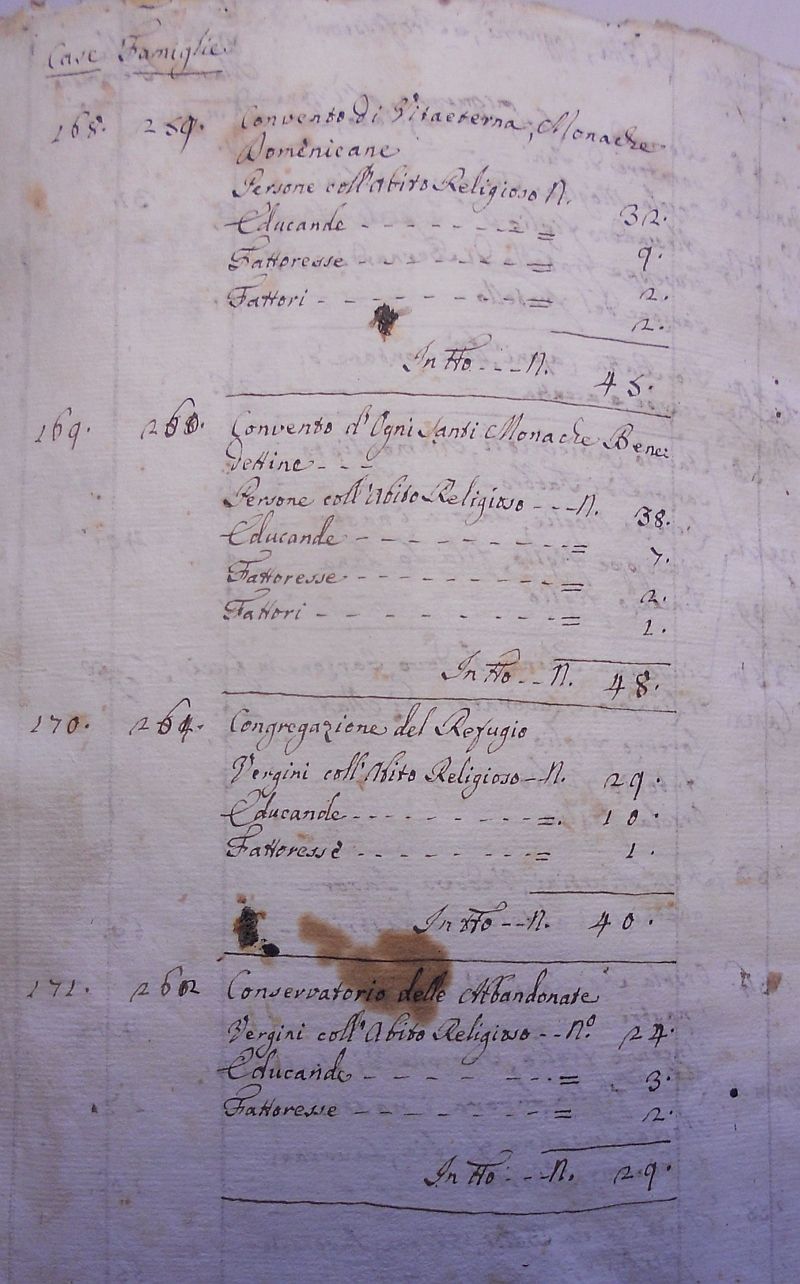 Case Famiglie
168. 259. Convento di Vitaeterna, Monache
Domenicane
Persone coll'Abito Religioso N. 32.
Educande - - - - - - - = 9.
Fattoresse - - - - - - - = 2.
Fattori - - - - - - - - = 2.
In Tto - - - N. 45.
169. 260. Convento d'Ogni Santi Monache Bene:
dettine - - -
Persone coll'Abito Religioso - - - N. 38.
Educande - - - - - - - - = 7.
Fattoresse - - - - - - - - = 2.
Fattori - - - - - - - - - = 1.
In Tto - - N. 48.
170. Congregazione del Refugio
Vergini coll'Abito Religioso - - N. 29.
Educande - - - - - - - - =. 10.
Fattoresse - - - - - - - = 1.
In Tto - - N. 40.
171. 262 Conservatorio delle Abbandonate
Vergini coll'Abito Religioso - - Nº 24.
Educande - - - - - - - - = 3.
Fattoresse - - - - - - - - = 2.
In Tto - - - N. 29.